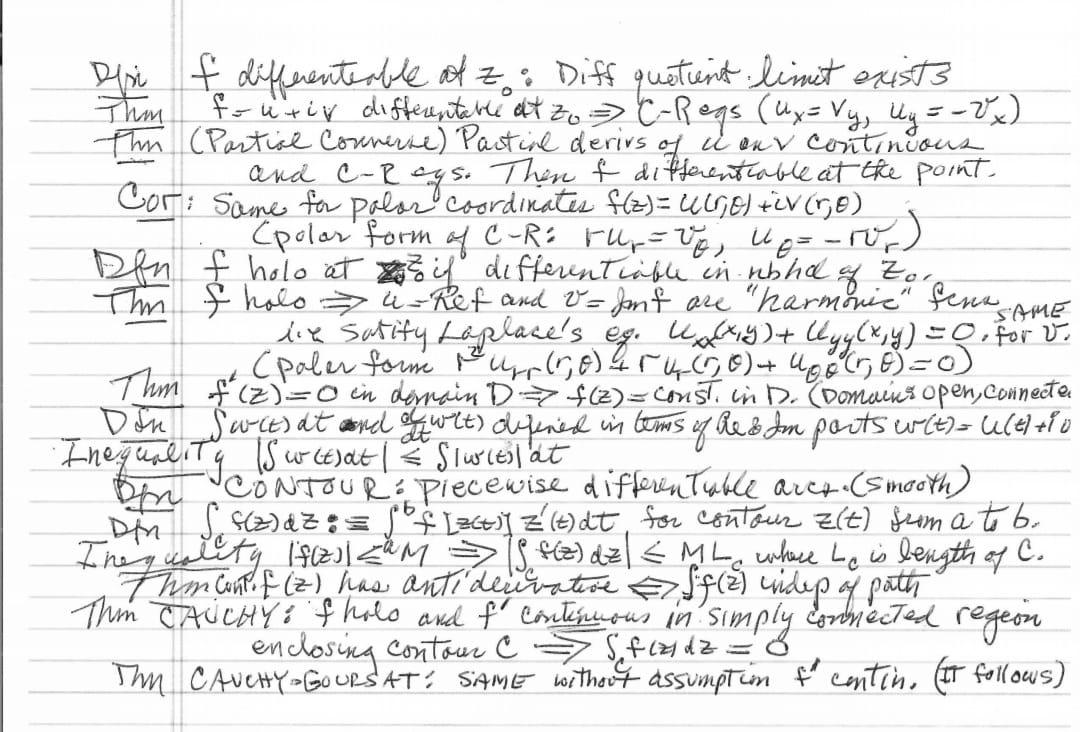 Dfn f differentiable at z₀: Diff quotient limit exists
Thm f = u + iv differentiable at z₀ ⇒ C-R eqs (uₓ = v_y, u_y = -vₓ)
Thm (Partial Converse) Partial derivs of u and v continuous
and C-R eqs. Then f differentiable at the point.
Cor: Same for polar coordinates f(z) = u(r,θ) + iv(r,θ)
(polar form of C-R: ru_r = v_θ, u_θ = -rv_r)
Dfn f holo at z₀ if differentiable in nbhd of z₀.
Thm f holo ⇒ u = Re f and v = Im f are "harmonic" fcns
i.e. satisfy Laplace's eq. uₓₓ(x,y) + u_yy(x,y) = 0. SAME for v.
(polar form r² u_rr(r,θ) + r u_r(r,θ) + u_θθ(r,θ) = 0)
Thm f'(z) = 0 in domain D ⇒ f(z) = const. in D. (Domain is open, connected
Dfn ∫w(t)dt and d/dt w(t) defined in terms of Re & Im parts w(t) = u(t) + iv
Inequality |∫w(t)dt| ≤ ∫|w(t)|dt
Dfn CONTOUR: piecewise differentiable arcs. (smooth)
Dfn ∫_C f(z)dz :≡ ∫_a^b f[z(t)] z'(t)dt, for contour z(t) from a to b.
Inequality |f(z)| ≤ M ⇒ |∫_C f(z)dz| ≤ ML_C where L_C is length of C.
Thm Cont. f(z) has antiderivative ⇔ ∫f(z) indep of path
Thm CAUCHY: f holo and f' continuous in simply connected region
enclosing contour C ⇒ ∫_C f(z)dz = 0
Thm CAUCHY-GOURSAT: SAME without assumption f' contin. (IT follows)